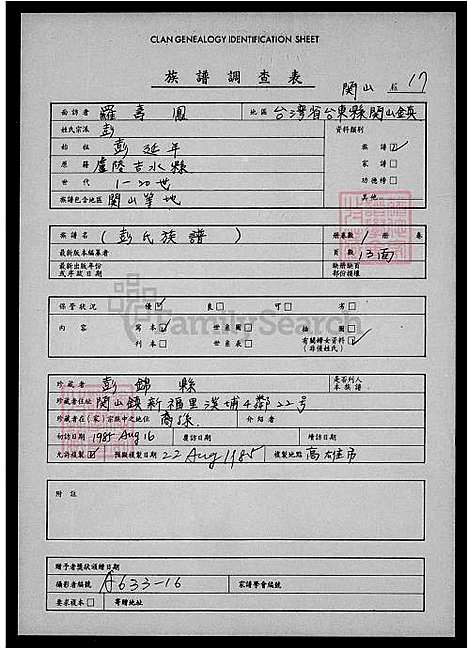 CLAN GENEALOGY IDENTIFICATION SHEET
族譜調查表
関山 17
面訪者 羅壽鳳 地區 台灣省台東縣関山鎮
姓氏宗派 彭 資料類別
始祖 彭延年 族譜 ☑
原籍 盧陵吉水縣 家譜 □
世代 1-20世 功德榜 □
族譜包含地區 関山等地 其他
族譜名 (彭氏族譜) 册卷數 1 册 卷
最新版本編纂者 頁數 13面
最新出版年份或序跋日期 缺册缺頁部份損壞
保管狀況 優 ☑ 良 □ 可 □ 劣 □
內容 寫本 ☑ 世系圖 □ 插圖 □
刊本 □ 世系表 □ 有關婦女資料(非僅姓氏) ☑
FamilySearch
珍藏者 彭錦縣 是否列入本族譜
珍藏者住址 関山鎮新福里溪埔4鄰22号
珍藏者在(家)宗族中之地位 裔孫 介紹者
初訪日期 1985 Aug 16 覆訪日期 續訪日期
允許複製 ☑ 預擬複製日期 22 Aug 1985 複製地點 高雄市
附註
贈予者獎狀頒贈日期
攝影者編號 A633-16 家譜學會編號
要求複本 □ 寄贈地址